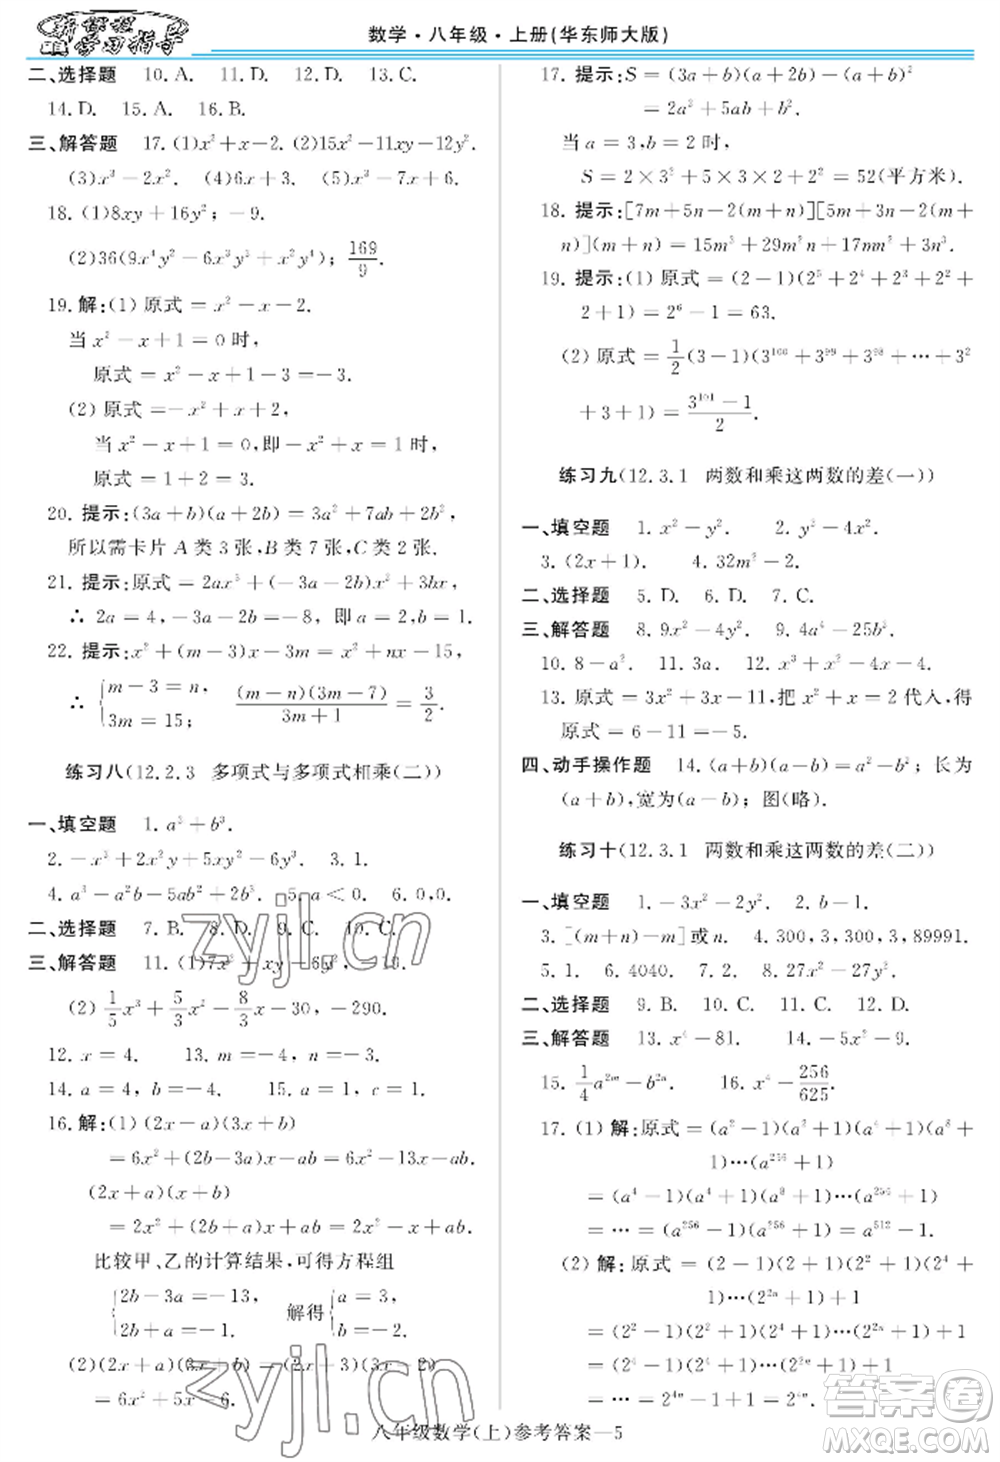 新课程
学习指导
数学·八年级·上册(华东师大版)
二、选择题 10. A. 11. D. 12. D. 13. C.
14. D. 15. A. 16. B.
三、解答题 17. (1)x²+x-2. (2)15x²-11xy-12y².
(3)x³-2x². (4)6x+3. (5)x³-7x+6.
18. (1)8xy+16y²; -9.
(2)36(9x⁴y²-6x³y³+x²y⁴); 169/9.
19. 解:(1) 原式=x²-x-2.
当 x²-x+1=0时,
原式=x²-x+1-3=-3.
(2) 原式=-x²+x+2,
当 x²-x+1=0,即-x²+x=1时,
原式=1+2=3.
20. 提示:(3a+b)(a+2b)=3a²+7ab+2b²,
所以需卡片 A 类 3 张, B 类 7 张, C 类 2 张.
21. 提示: 原式=2ax³+(-3a-2b)x²+3bx,
∴ 2a=4,-3a-2b=-8, 即 a=2,b=1.
22. 提示:x²+(m-3)x-3m=x²+nx-15,
∴ {m-3=n, 3m=15; (m-n)(3m-7)/3m+1=3/2.
练习八(12.2.3 多项式与多项式相乘(二))
一、填空题 1. a³+b³.
2. -x³+2x²y+5xy²-6y³. 3. 1.
4. a³-a²b-5ab²+2b³. 5. a<0. 6. 0,0.
二、选择题 7. B. 8. D. 9. C. 10. C.
三、解答题 11. (1)7x²+xy-16y², -13.
(2) 1/5x³+5/3x²-8/3x-30, -290.
12. x=4. 13. m=-4, n=-3.
14. a=4, b=-4. 15. a=1, c=1.
16. 解:(1) (2x-a)(3x+b)
=6x²+(2b-3a)x-ab=6x²-13x+6.
(2x+a)(x+b)
=2x²+(2b+a)x+ab=2x²-x-6.
比较甲、乙的计算结果,可得方程组
{2b-3a=-13, 2b+a=-1. 解得{a=3, b=-2.
(2) (2x+a)(3x+b)=(2x+3)(3x-2)
=6x²+5x-6.
17. 提示: S=(3a+b)(a+2b)-(a+b)²
=2a²+5ab+b².
当 a=3,b=2 时,
S=2×3²+5×3×2+2²=52(平方米).
18. 提示:[7m+5n-2(m+n)][5m+3n-2(m+
n)](m+n)=15m³+29m²n+17mn²+3n³.
19. 提示:(1) 原式=(2-1)(2⁵+2⁴+2³+2²+
2+1)=2⁶-1=63.
(2) 原式=1/2(3-1)(3¹⁰⁰+3⁹⁹+3⁹⁸+…+3²
+3+1)=3¹⁰¹-1/2.
练习九(12.3.1 两数和乘这两数的差(一))
一、填空题 1. x²-y². 2. y²-4x².
3. (2x+1). 4. 32m²-5.
二、选择题 5. D. 6. D. 7. C.
三、解答题 8. 9x²-4y². 9. 4a²-25b².
10. 8-a². 11. 3a. 12. x³+x²-4x-4.
13. 原式=3x²+3x-11,把 x²+x=2代入,得
原式=6-11=-5.
四、动手操作题 14. (a+b)(a-b)=a²-b²; 长为
(a+b),宽为(a-b); 图(略).
练习十(12.3.1 两数和乘这两数的差(二))
一、填空题 1. -3x²-2y². 2. b-1.
3. [(m+n)-m]或n. 4. 300,3,300,3,89991.
5. 1. 6. 4040. 7. 2. 8. 27x²-27y².
二、选择题 9. B. 10. C. 11. A. 12. D.
三、解答题 13. x⁴-81. 14. -5x²-9.
15. 1/4a²ᵐ-b²ⁿ. 16. x⁴-256/625.
17. (1) 解:原式=(a²-1)(a²+1)(a⁴+1)(a⁸+
1)…(a²⁵⁶+1)
=(a⁴-1)(a⁴+1)(a⁸+1)…(a²⁵⁶+1)
=…=(a²⁵⁶-1)(a²⁵⁶+1)=a⁵¹²-1.
(2) 解: 原式=(2-1)(2+1)(2²+1)(2⁴+
1)…(2²ⁿ+1)+1
=(2²-1)(2²+1)(2⁴+1)…(2²ⁿ+1)+1
=(2²ⁿ-1)(2²ⁿ+1)+1
=2⁴ⁿ-1+1=2⁴ⁿ.
八年级数学(上)参考答案—5
zyjl.cn
zyjl.cn
答案圈
MXQE.COM